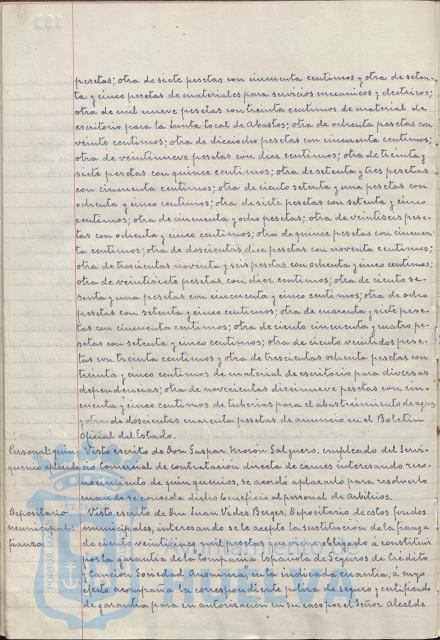 pesetas; otra de siete pesetas con cincuenta centimos y otra de seten-
ta y cinco pesetas de materiales para servicios mecanicos y electricos;
otra de mil nueve pesetas con treinta centimos de material de
escritorio para la Junta local de Abastos; otra de ochenta pesetas con
veinte centimos; otra de dieciocho pesetas con cincuenta centimos;
otra de veintinueve pesetas con diez centimos; otra de treinta y
siete pesetas con quince centimos; otra de setenta y tres pesetas
con cincuenta centimos; otra de ciento setenta y una pesetas con
ochenta y cinco centimos; otra de siete pesetas con setenta y cinco
centimos; otra de cincuenta y ocho pesetas; otra de veintiseis pese-
tas con ochenta y cinco centimos; otra de quince pesetas con cincuen-
ta centimos; otra de doscientas diez pesetas con noventa centimos;
otra de trescientas noventa y seis pesetas con ochenta y cinco centimos;
otra de veintisiete pesetas con diez centimos; otra de ciento se-
senta y una pesetas con cincuenta y cinco centimos; otra de ocho
pesetas con setenta y cinco centimos; otra de cuarenta y siete pese-
tas con cincuenta centimos; otra de ciento cincuenta y cuatro pe-
setas con setenta y cinco centimos; otra de ciento veintidos pese-
tas con treinta centimos y otra de trescientas ochenta pesetas con
treinta y cinco centimos de material de escritorio para diversas
dependencias; otra de novecientas diecinueve pesetas con cin-
cuenta y cinco centimos de tuberias para el abastecimiento de agua
y otra de doscientas cuarenta pesetas de anuncio en el Boletin
Oficial del Estado.
Personal: quin- Visto escrito de Don Gaspar Morón Salguero, empleado del Servi-
quenio aplazado cio Comercial de contratación directa de carnes interesando reco-
nocimiento de quinquenios, se acordó aplazarlo para resolverlo
cuando se conceda dicho beneficio al personal de Arbitrios.
Depositario Visto escrito de Don Juan Vides Berges, Depositario de estos fondos
municipal: municipales, interesando se le acepte la sustitucion de la fianza
fianza. de ciento veinticinco mil pesetas que está obligado á constituir
por la garantia de la Compañia Española de Seguros de Crédito
y Caución Sociedad Anonima", en la indicada cuantia, á cuyo
efecto acompaña la correspondiente poliza de seguro y certificado
de garantía para su autorización en su caso por el Señor Alcalde